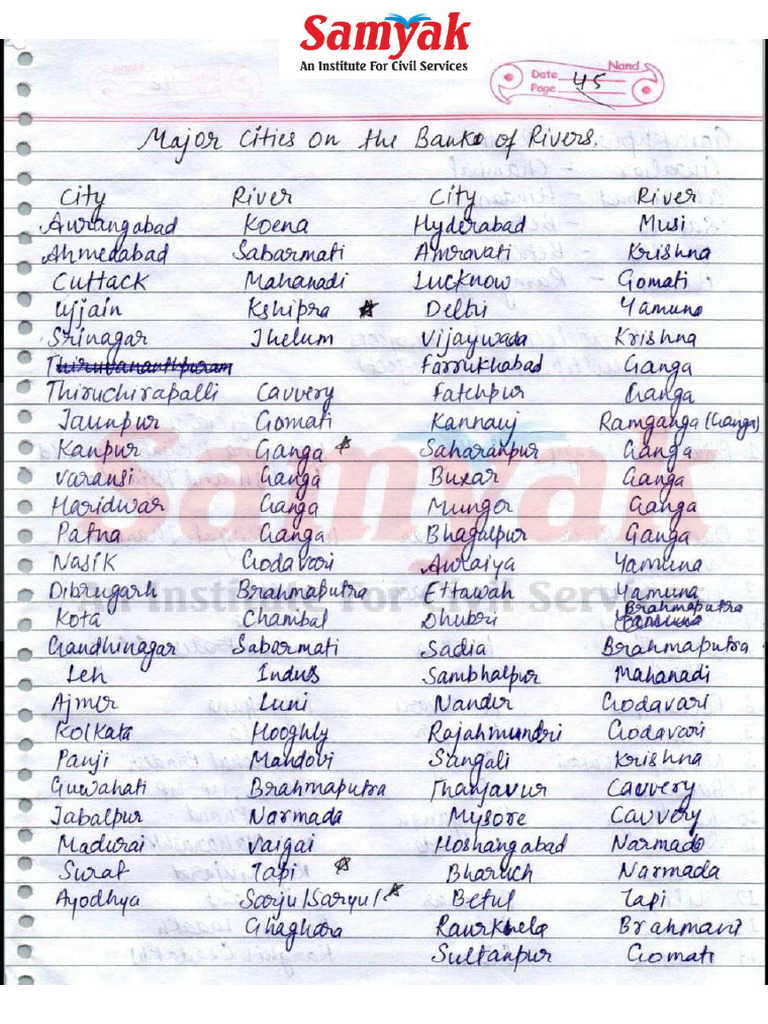 Samyak
An Institute For Civil Services
Nand
Date
Page 45
Major Cities on the Banks of Rivers.
City River City River
Aurangabad Koena Hyderabad Musi
Ahmedabad Sabarmati Amravati Krishna
Cuttack Mahanadi Lucknow Gomati
Ujjain Kshipra Delhi Yamuna
Srinagar Jhelum Vijaywada Krishna
Thiruvananthpuram Farrukhabad Ganga
Thiruchirapalli Cauvery Fatehpur Ganga
Jaunpur Gomati Kannauj Ramganga (Ganga)
Kanpur Ganga Saharanpur Ganga
Varansi Ganga Buxar Ganga
Haridwar Ganga Munger Ganga
Patna Ganga Bhagalpur Ganga
Nasik Godavari Auraiya Yamuna
Dibrugarh Brahmaputra Ettawah Yamuna
Kota Chambal Dhubri Brahmaputra
Gandhinagar Sabarmati Sadia Brahmaputra
Leh Indus Sambhalpur Mahanadi
Ajmer Luni Nander Godavari
Kolkata Hooghly Rajahmundri Godavari
Panji Mandovi Sangali Krishna
Guwahati Brahmaputra Thanjavur Cauvery
Jabalpur Narmada Mysore Cauvery
Madurai Vaigai Hoshangabad Narmada
Surat Tapi Bharuch Narmada
Ayodhya Sarju/Saryu/ Betul Tapi
Ghaghara Raurkhela Brahmani
Sultanpur Gomati
Samyak
An Institute For Civil Services